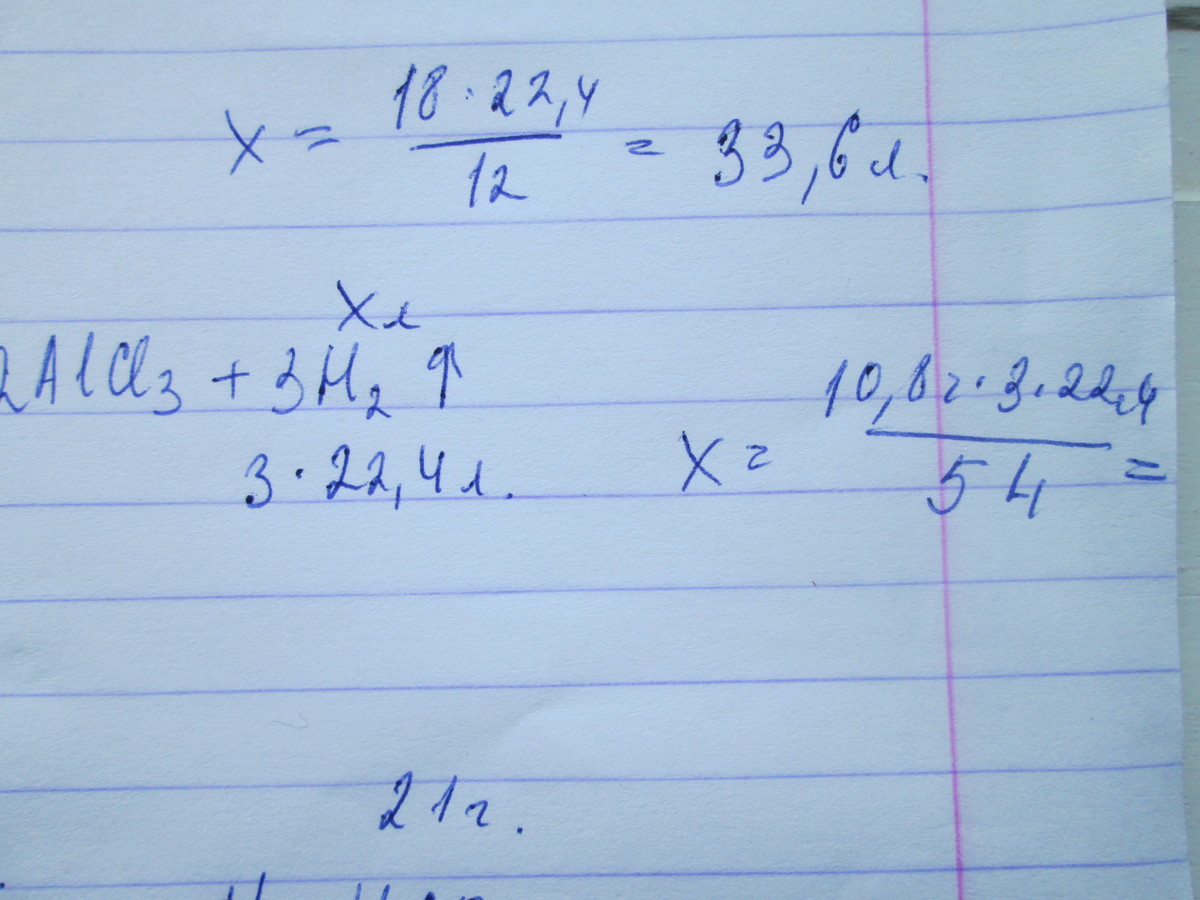 x = 18·22,4 / 12 = 33,6 л.
x л
2AlCl3 + 3H2 ↑
3·22,4 л.
x = 10,8 г·3·22,4 / 54 =
21 г.